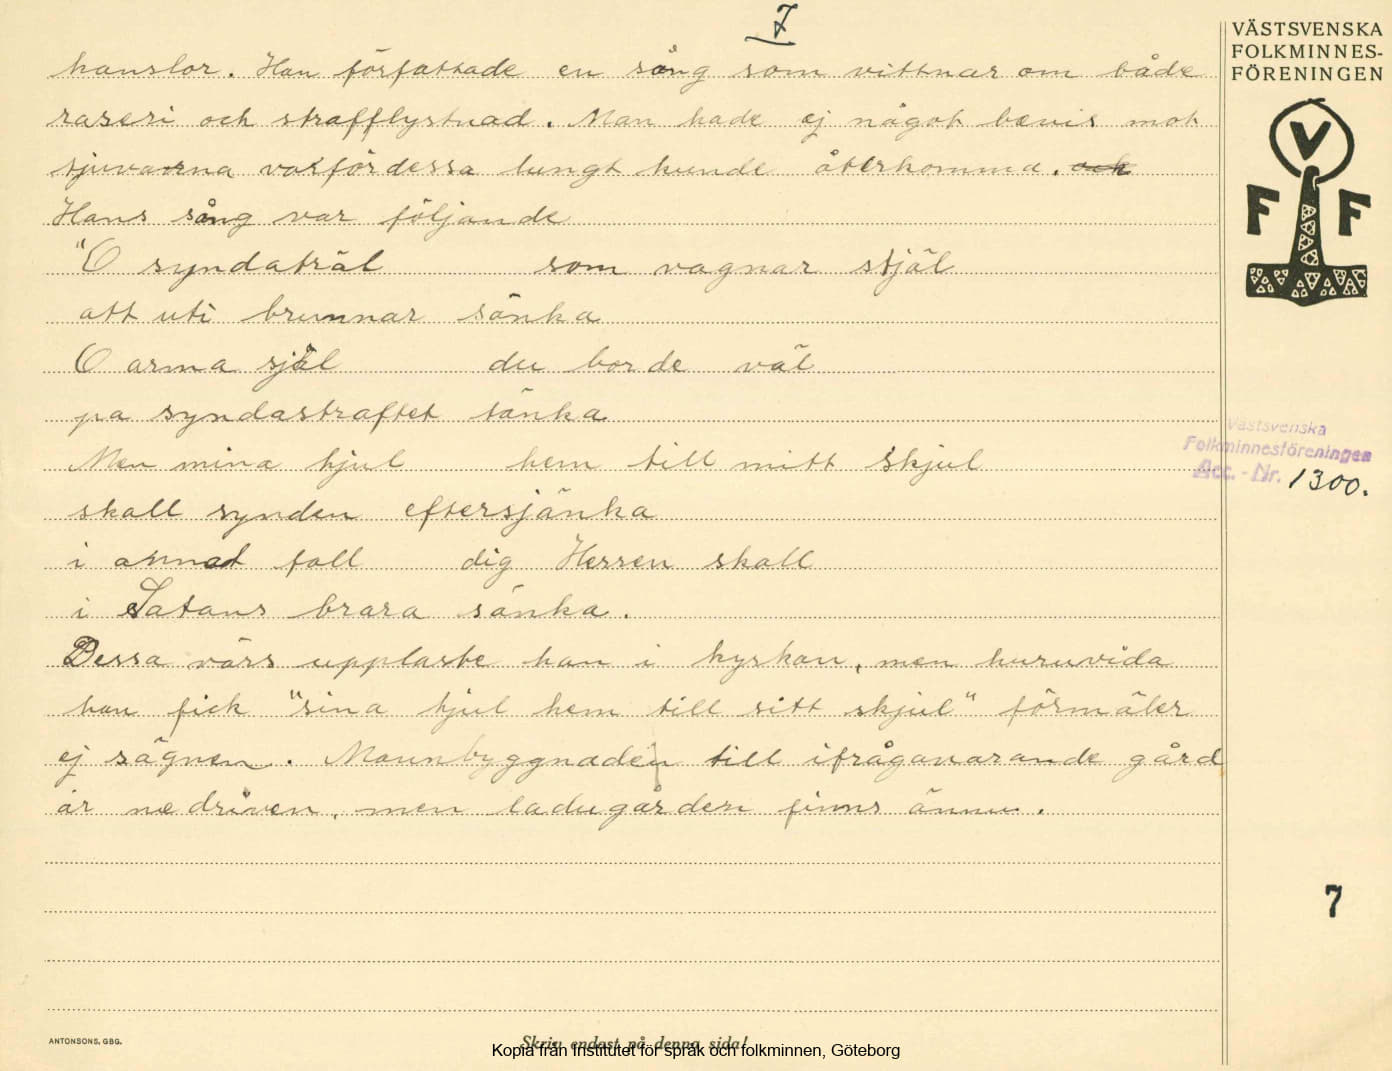 7
VÄSTSVENSKA
FOLKMINNES-
FÖRENINGEN
V
F F
känslor. Han författade en sång som vittnar om både
raseri och strafflystnad. Man hade ej något bevis mot
tjuvarna varför dessa lungt kunde återkomma. och
Hans sång var följande
"O syndaträl som vagnar stjäl
att uti brunnar sänka
O arma själ du borde väl
pa syndastraffet tänka
Men mina hjul hem till mitt skjul
skall synden eftersjänka
i annat fall dig Herren skall
i Satans brasa sänka.
Dessa värs upplaste han i kyrkan, men huruvida
han fick "sina hjul hem till sitt skjul" förmäler
ej sägnen. Mannbyggnaden till ifrågavarande gård
är nedriven, men ladugården finns ännu.
Västsvenska
Folkminnesföreningen
Acc. - Nr. 1300.
7
ANTONSONS, GBG.
Skriv endast på denna sida!
Kopia från Institutet för språk och folkminnen, Göteborg